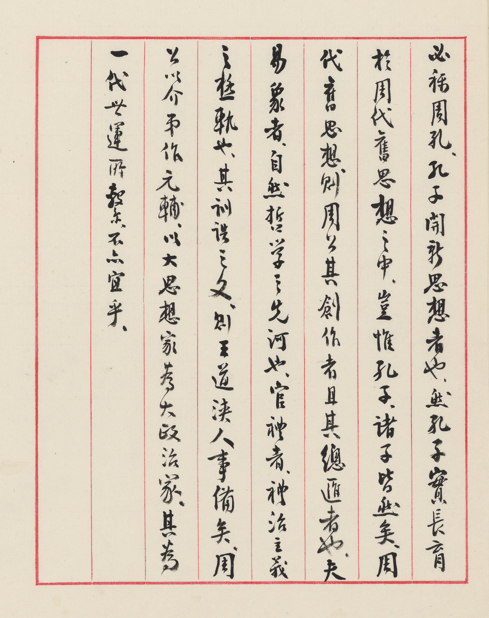 必稱周孔、孔子開新思想者也、然孔子實長育
於周代舊思想之中、豈惟孔子、諸子皆然矣、周
代舊思想、則周公其創作者且其總匯者也、夫
易象者、自然哲学之先河也、官禮者、禮治主義
之極軌也、其訓誥之文、則王道浹人事備矣、周
公以介弟作元輔、以大思想家為大政治家、其為
一代世運所繫、不亦宜乎、